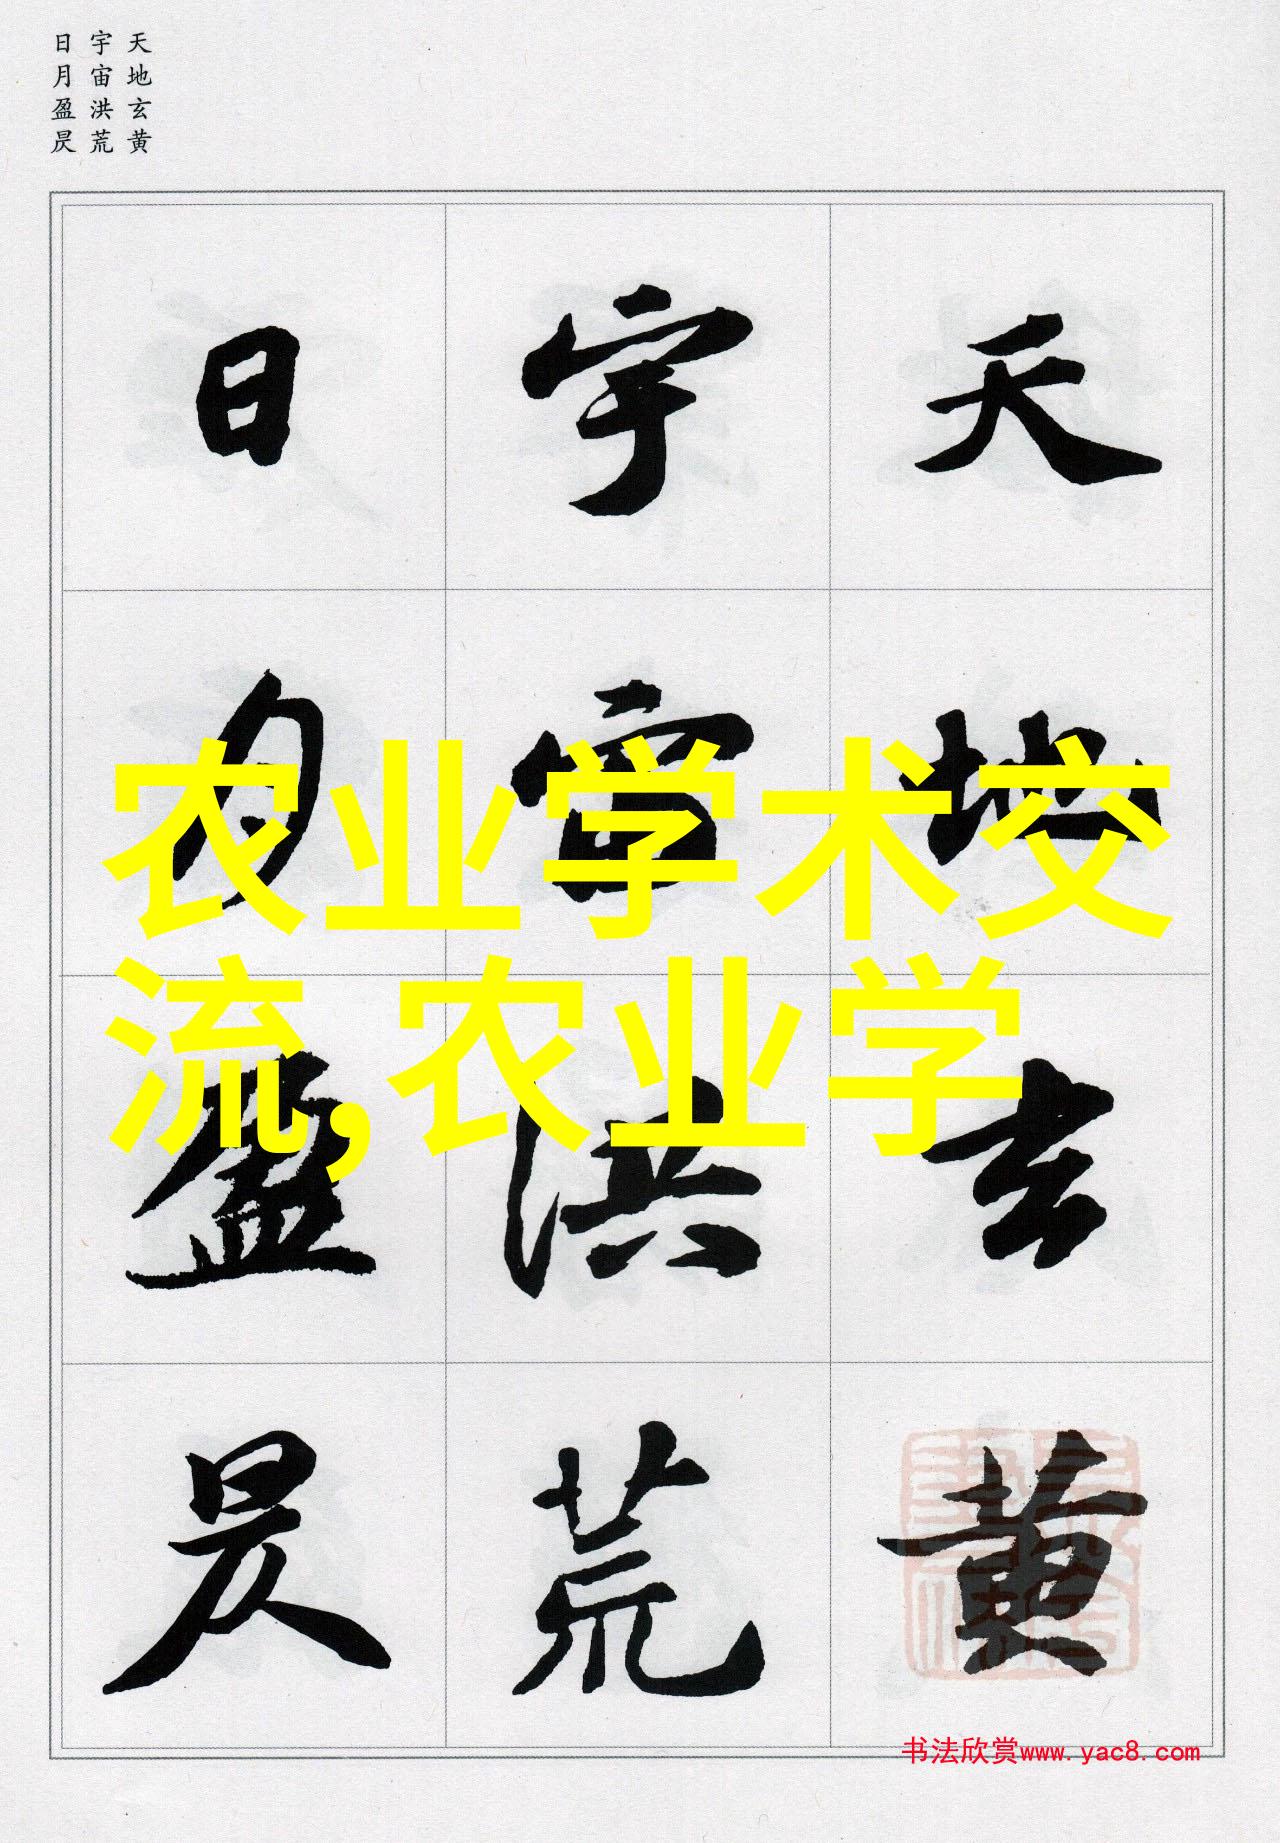 天地玄黄
宇宙洪荒
日月盈昃
天地玄黄
宇宙洪荒
日月盈昃
农业学术交
流,农业学
书法欣赏www.yac8.com